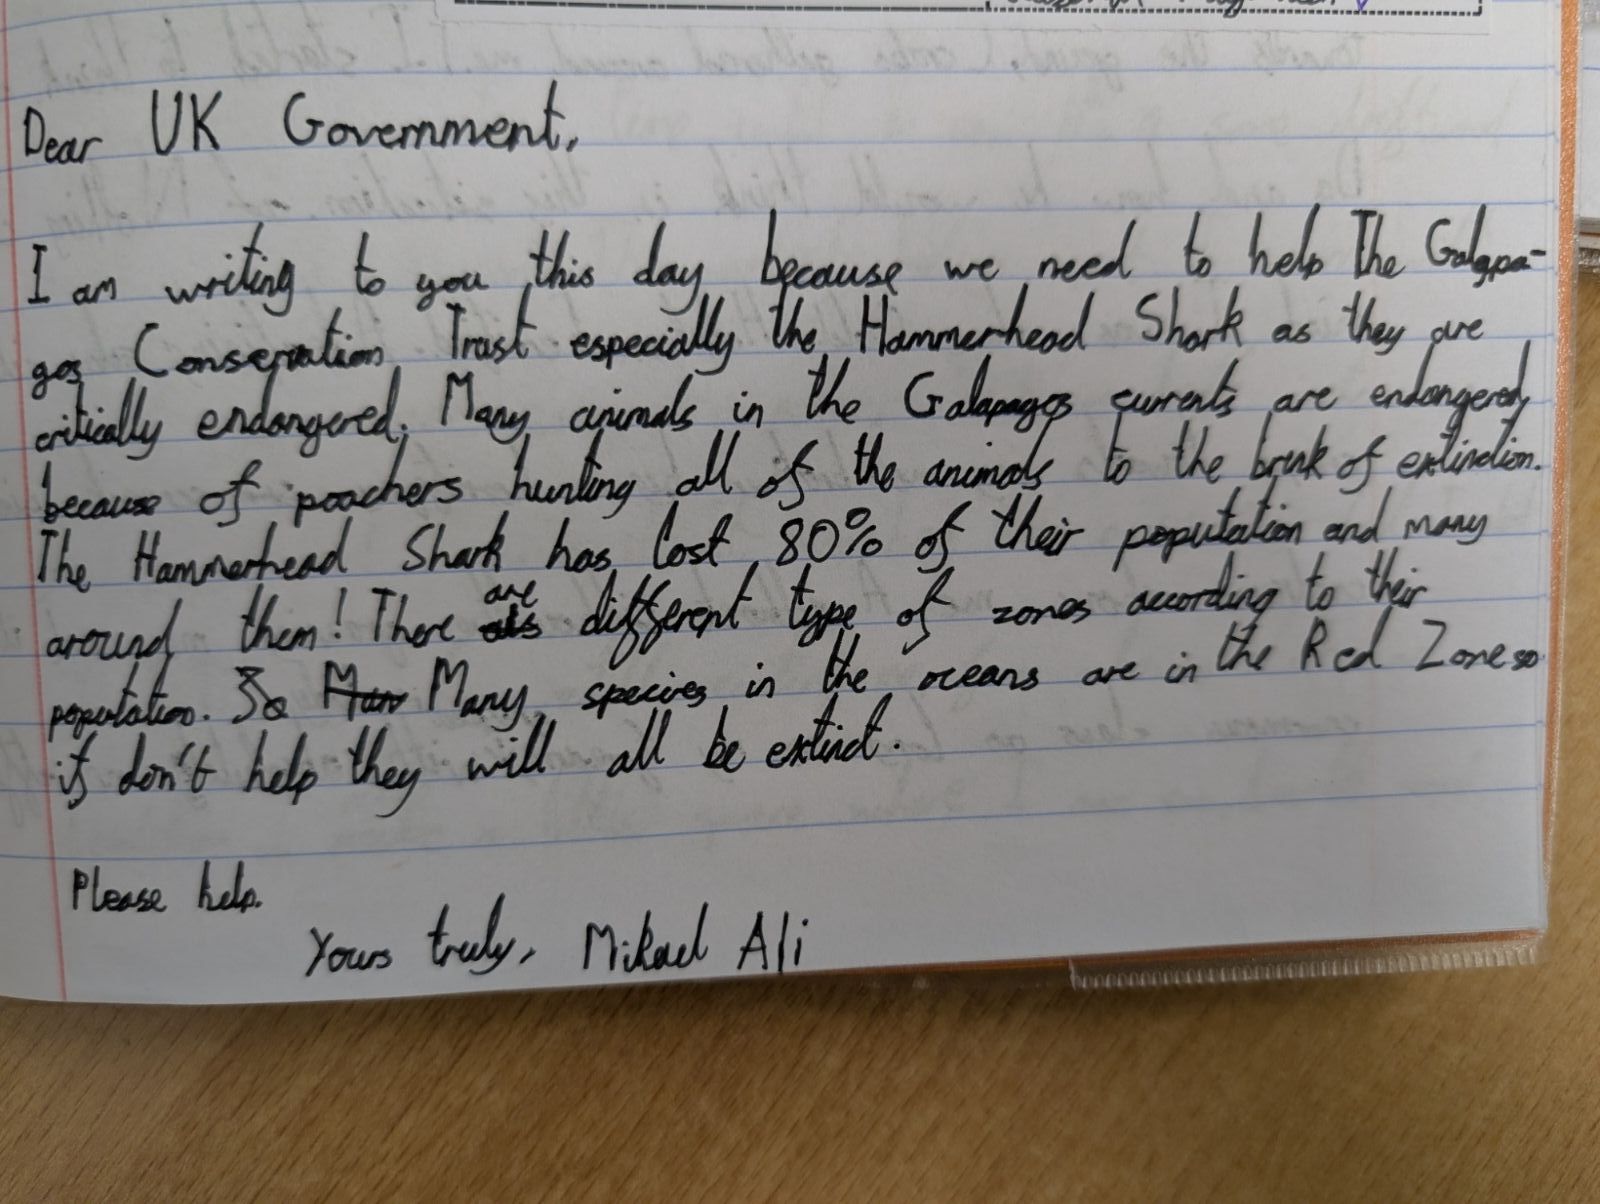 Dear UK Government,
I am writing to you this day because we need to help The Galapa-
gos Conservation Trust especially the Hammerhead Shark as they are
critically endangered. Many animals in the Galapagos currents are endangered
because of poachers hunting all of the animals to the brink of extinction.
The Hammerhead Shark has lost 80% of their population and many
around them! There are different type of zones according to their
population. Many species in the oceans are in the Red Zone so
if don't help they will all be extinct.
Please help.
Yours truly, Mikael Ali